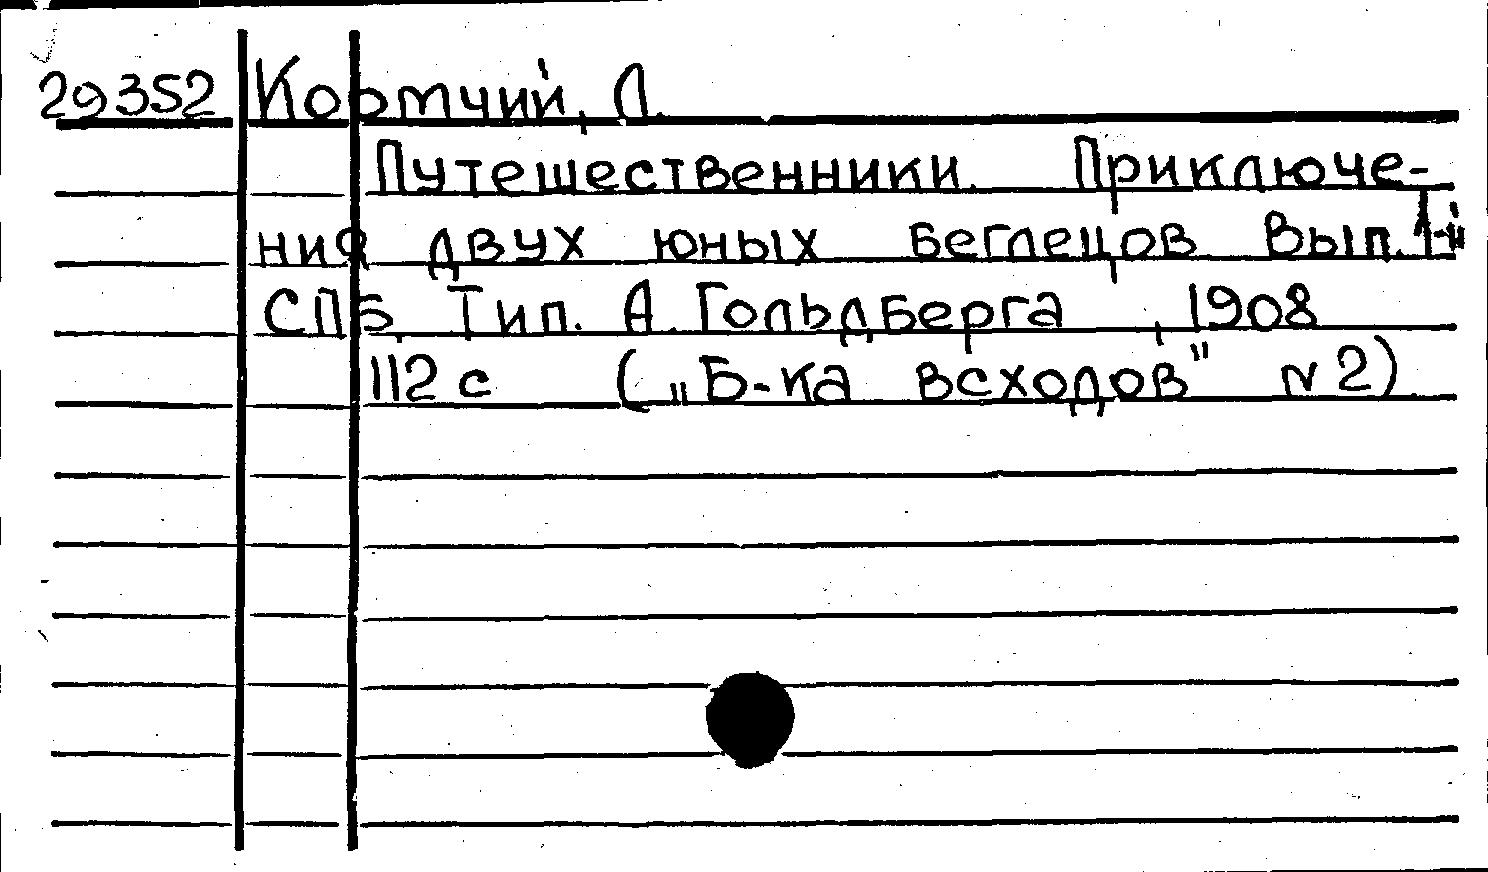 29352 Кормчий, Л.
Путешественники. Приключе-
ния двух юных беглецов. Вып. 1-й
СПб, Тип. А. Гольдберга, 1908
112 с („Б-ка всходов" N 2).